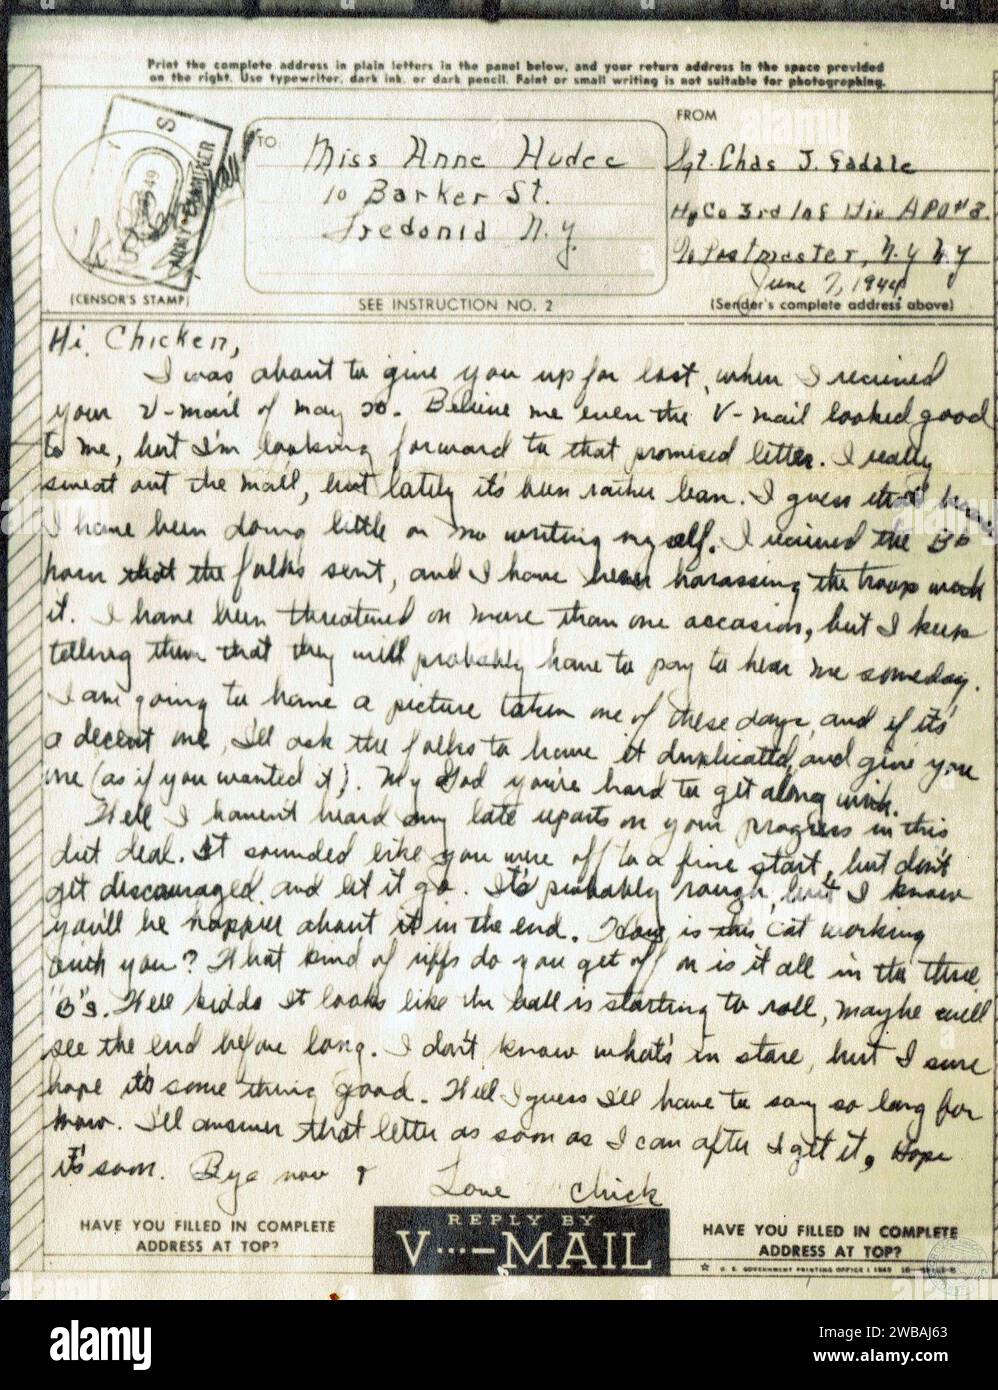 Print the complete address in plain letters in the panel below, and your return address in the space provided
on the right. Use typewriter, dark ink, or dark pencil. Faint or small writing is not suitable for photographing.
FROM
TO
Miss Anne Hudec
10 Barker St.
Fredonia N.Y.
Sgt. Chas J.
Hq Co 3rd Inf Div APO #3.
% Postmaster, N.Y. N.Y
June 7, 1944
(CENSOR'S STAMP)
SEE INSTRUCTION NO. 2
(Sender's complete address above)
U S
ARMY EXAMINER
Hi. Chicken,
I was about to give you up for lost, when I received
your V-mail of May 20. Believe me even the V-mail looked good
to me, but I'm looking forward to that promised letter. I really
sweat out the mail, but lately it's been rather lean. I guess
I have been doing little or no writing myself. I received the Bb
horn that the folks sent, and I have been harassing the troops with
it. I have been threatened on more than one occasion, but I keep
telling them that they will probably have to pay to hear me someday.
I am going to have a picture taken one of these days, and if it's
a decent one, I'll ask the folks to have it duplicated, and give you
one (as if you wanted it). My God you're hard to get along with.
Well I haven't heard any late reports on your progress in this
diet deal. It sounded like you were off to a fine start, but don't
get discouraged, and let it go. It's probably rough, but I know
you'll be happier about it in the end. How is this cat working
with you? What kind of riffs do you get off on is it all in the three
"B"s. Well kiddo it looks like the ball is starting to roll, maybe we'll
see the end before long. I don't know what's in store, but I sure
hope it's something good. Well I guess I'll have to say so long for
now. I'll answer that letter as soon as I can after I get it, Hope
it's soon. Bye now &
Love Chick
HAVE YOU FILLED IN COMPLETE
ADDRESS AT TOP?
REPLY BY
V···—MAIL
HAVE YOU FILLED IN COMPLETE
ADDRESS AT TOP?
☆ U. S. GOVERNMENT PRINTING OFFICE : 1943
alamy
Image ID: 2WBAJ63
www.alamy.com